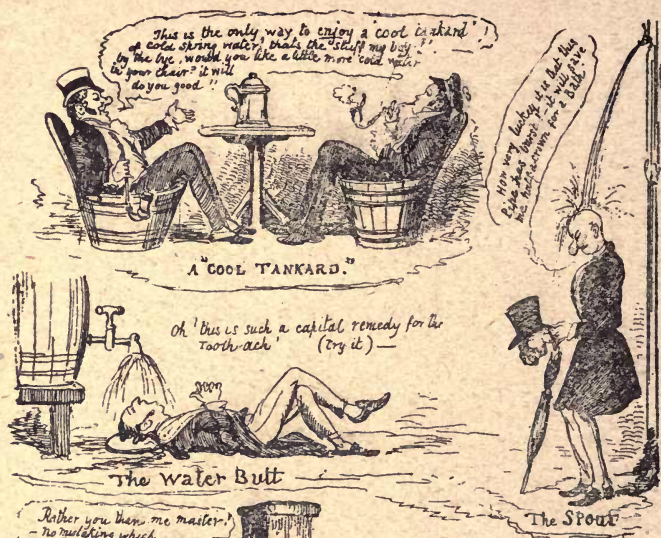 This is the only way to enjoy a 'cool tankard'!
of cold spring water, that's the "stuff my boy"!
by the bye, would you like a little more cold water
in your chair? it will
do you good!!
How very lucky it is that this
Pipe has burst it will save
me half a crown for a Bath
A "COOL TANKARD."
Oh! this is such a capital remedy for the
Tooth-ach! (try it) —
The Water Butt
The SPOUT
Rather you than me master!
— no mistaking which